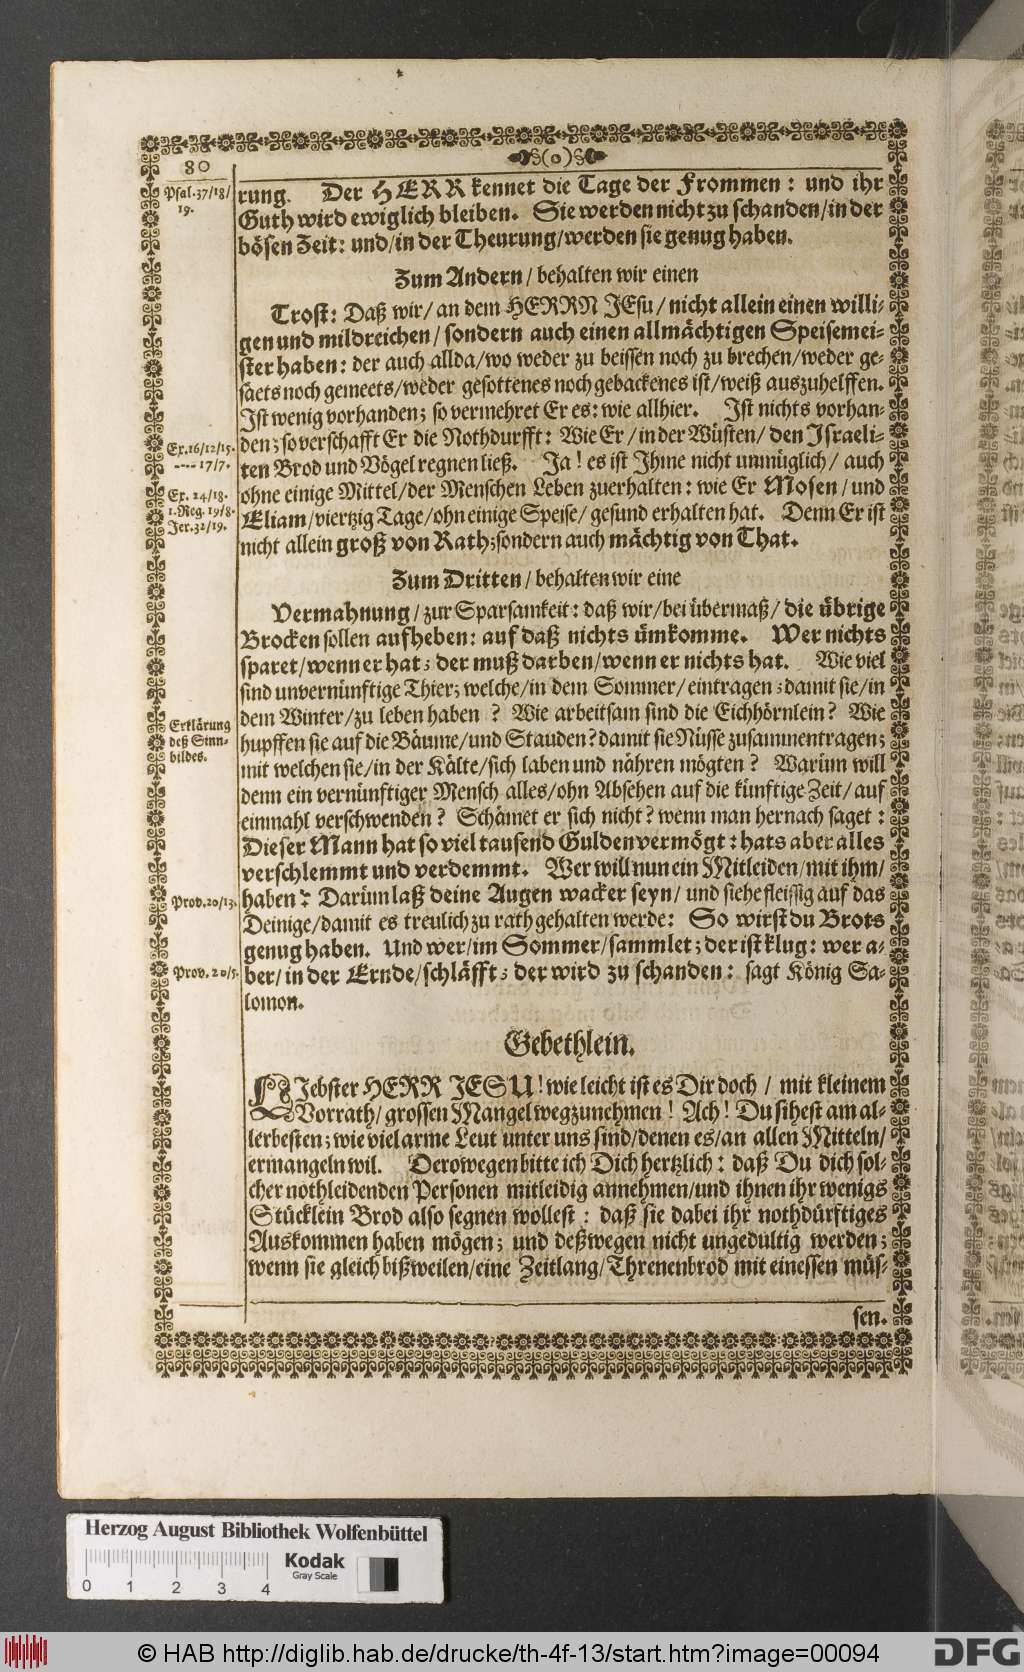 80
(o)
Psal.37/18/
19.
rung. Der HERR kennet die Tage der Frommen: und ihr
Guth wird ewiglich bleiben. Sie werden nicht zu schanden/in der
bösen Zeit: und/in der Theurung/werden sie genug haben.
Zum Andern/ behalten wir einen
Trost: Daß wir/ an dem HERRN JEsu/ nicht allein einen willi-
gen und mildreichen/ sondern auch einen allmächtigen Speisemei-
ster haben: der auch allda/wo weder zu beissen noch zu brechen/weder ge-
säets noch gemeets/weder gesottenes noch gebackenes ist/weiß auszuhelffen.
Ist wenig vorhanden; so vermehret Er es: wie allhier. Ist nichts vorhan-
Ex.16/12/15.
---- 17/7.
den; so verschafft Er die Nothdurfft: Wie Er/in der Wüsten/ den Israeli-
ten Brod und Vögel regnen ließ. Ja! es ist Ihme nicht unmüglich/ auch
Ex. 24/18.
1.Reg. 19/8.
Jer.32/19.
ohne einige Mittel/der Menschen Leben zuerhalten: wie Er Mosen/ und
Eliam/viertzig Tage/ohn einige Speise/ gesund erhalten hat. Denn Er ist
nicht allein groß von Rath; sondern auch mächtig von That.
Zum Dritten/ behalten wir eine
Vermahnung/ zur Sparsamkeit: daß wir/bei übermaß/ die übrige
Brocken sollen aufheben: auf daß nichts ümkomme. Wer nichts
sparet/wenn er hat; der muß darben/wenn er nichts hat. Wie viel
sind unvernünftige Thier; welche/in dem Sommer/ eintragen; damit sie/in
Erklärung
deß Sinn-
bildes.
dem Winter/zu leben haben? Wie arbeitsam sind die Eichhörnlein? Wie
hupffen sie auf die Bäume/und Stauden? damit sie Nüsse zusammentragen;
mit welchen sie/in der Kälte/sich laben und nähren mögten? Warüm will
denn ein vernünftiger Mensch alles/ohn Absehen auf die künftige Zeit/ auf
einmahl verschwenden? Schämet er sich nicht? wenn man hernach saget:
Dieser Mann hat so viel tausend Gulden vermögt: hats aber alles
verschlemmt und verdemmt. Wer will nun ein Mitleiden/mit ihm/
Prov.20/13.
haben? Darüm laß deine Augen wacker seyn/ und siehe fleissig auf das
Deinige/damit es treulich zu rath gehalten werde: So wirst du Brots
genug haben. Und wer/im Sommer/sammlet; der ist klug: wer a-
Prov. 20/5.
ber/in der Ernde/schläfft; der wird zu schanden: sagt König Sa-
lomon.
Gebethlein.
LJebster HERR JESU! wie leicht ist es Dir doch/ mit kleinem
Vorrath/ grossen Mangel wegzunehmen! Ach! Du sihest am al-
lerbesten; wie viel arme Leut unter uns sind/denen es/an allen Mitteln/
ermangeln wil. Derowegen bitte ich Dich hertzlich: daß Du dich sol-
cher nothleidenden Personen mitleidig annehmen/und ihnen ihr wenigs
Stücklein Brod also segnen wollest: daß sie dabei ihr nothdürftiges
Auskommen haben mögen; und deßwegen nicht ungedultig werden;
wenn sie gleich bißweilen/eine Zeitlang/Threnenbrod mit einessen müs-
sen.
Herzog August Bibliothek Wolfenbüttel
0 1 2 3 4
Kodak
Gray Scale
© HAB http://diglib.hab.de/drucke/th-4f-13/start.htm?image=00094
DFG